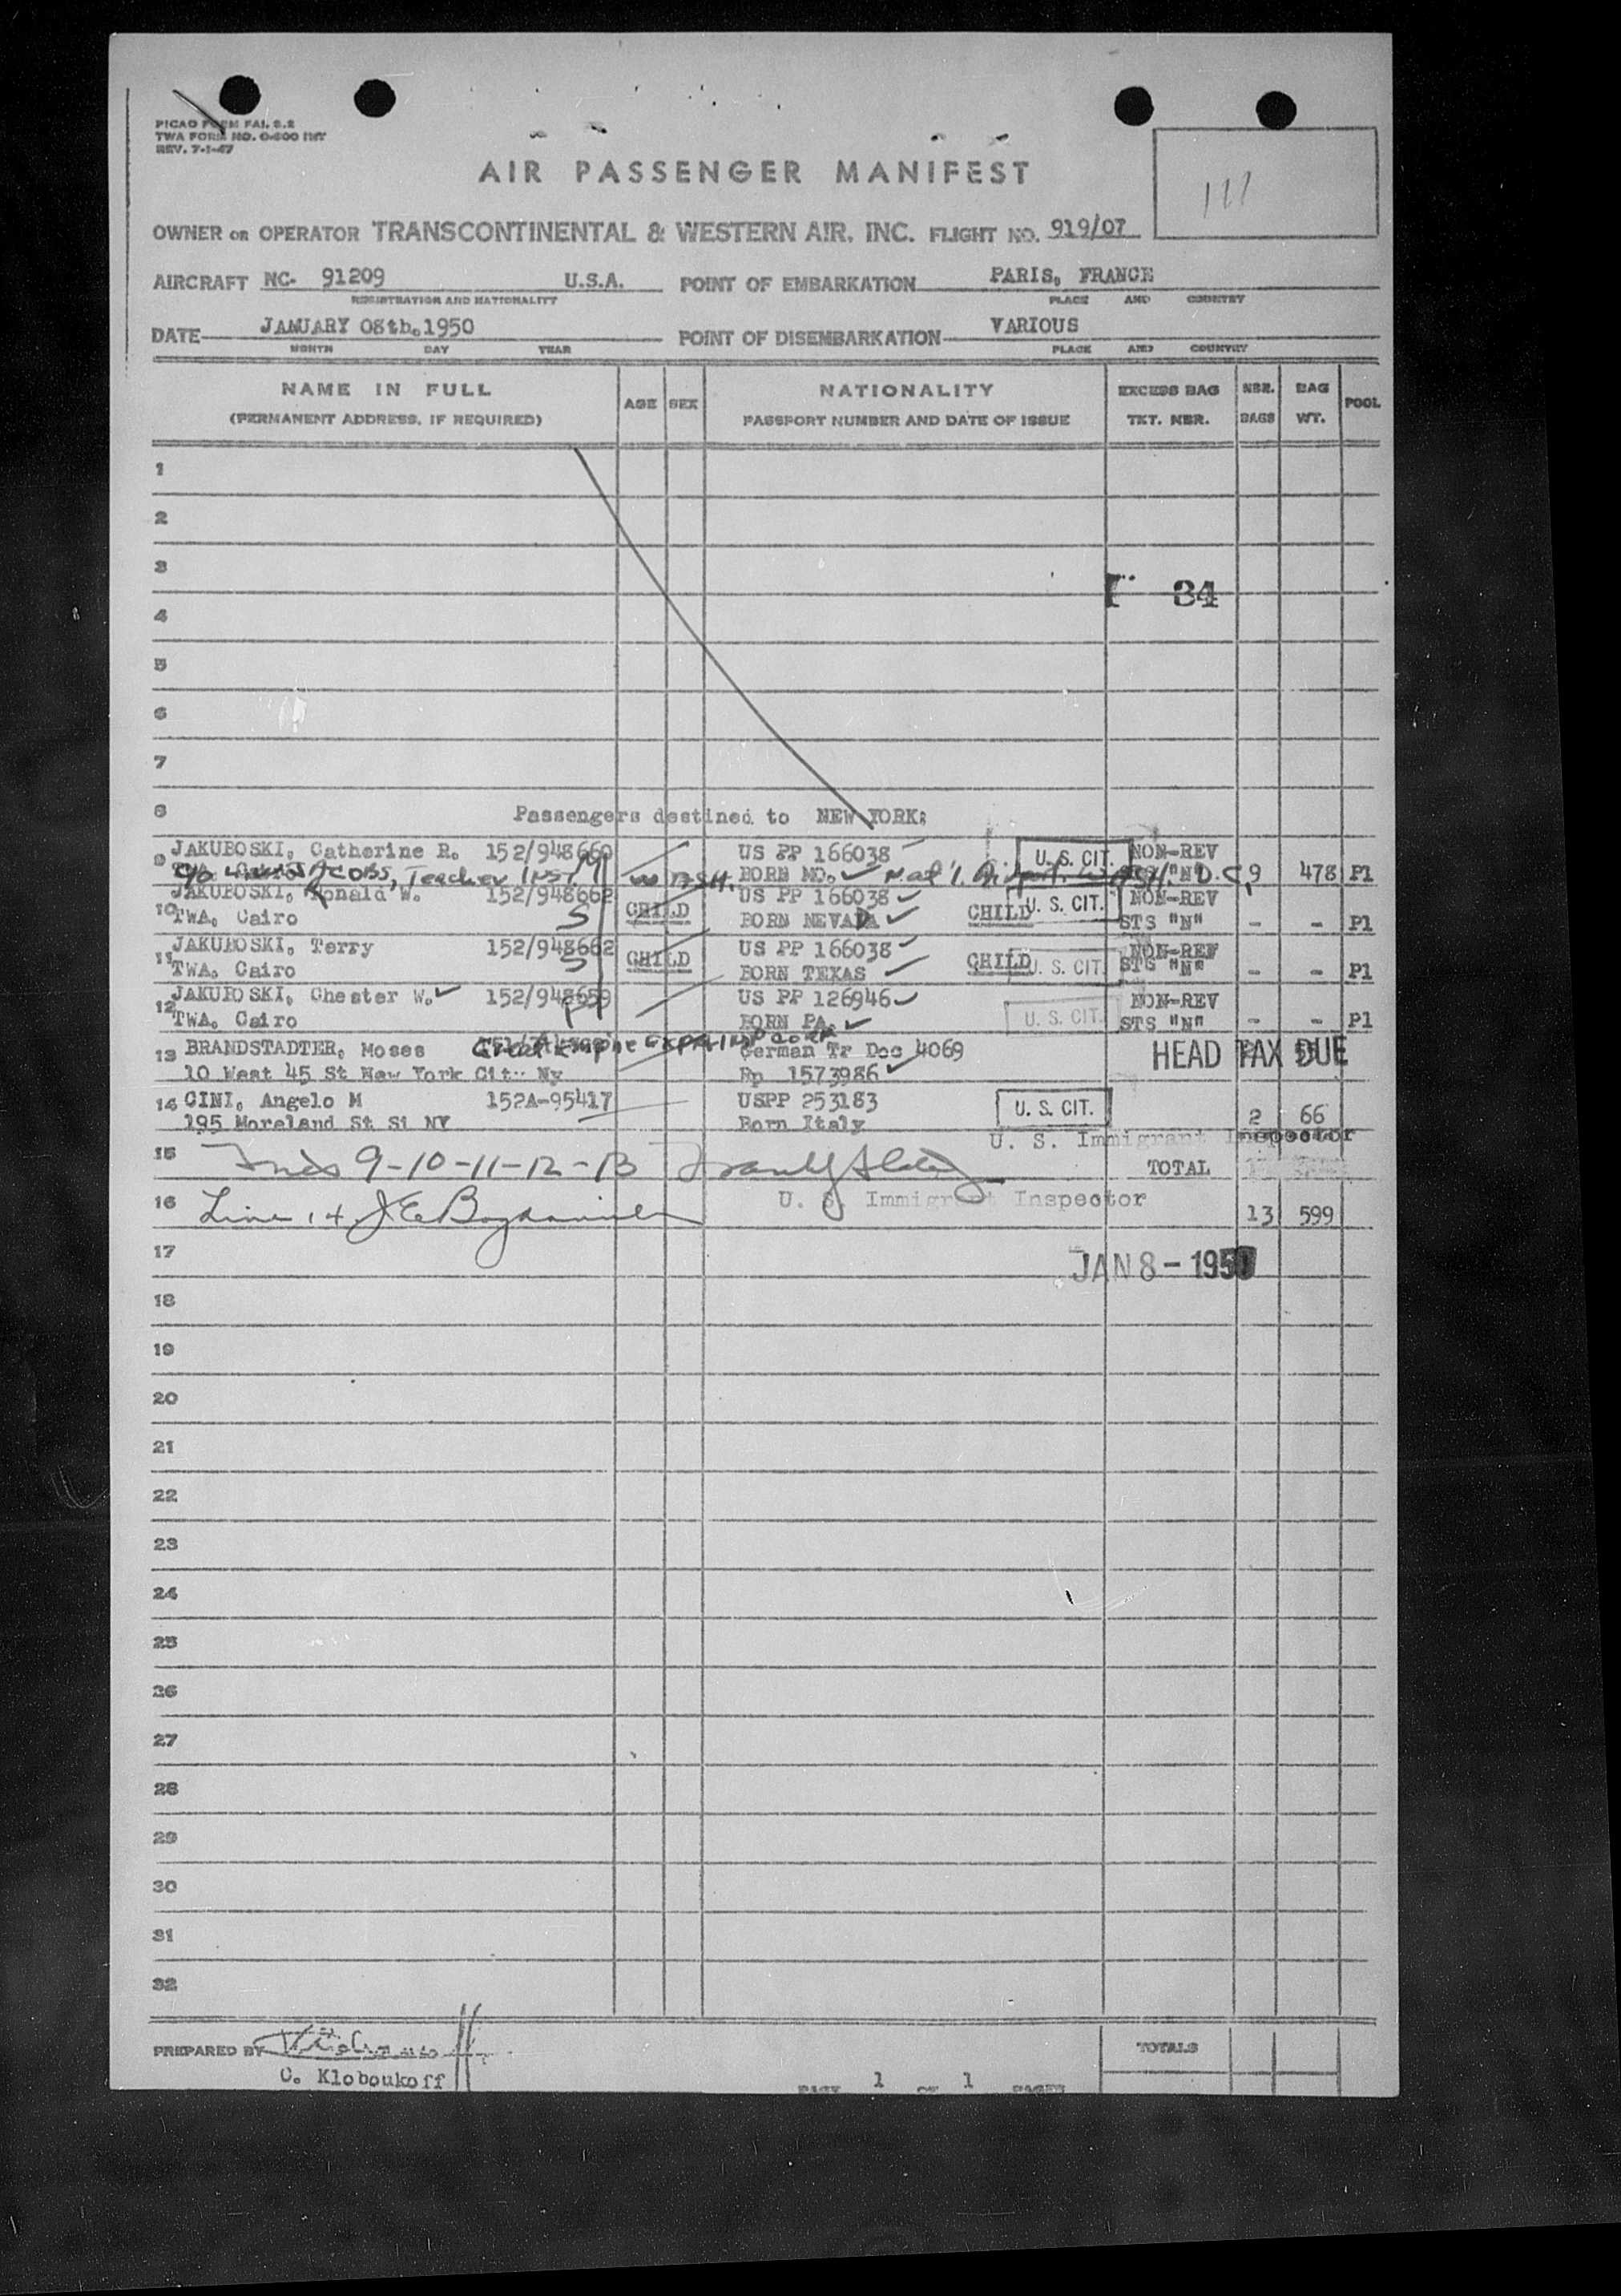 PICAO FORM FAL S.2
TWA FORM NO. O-800 INT
REV. 7-1-47
AIR PASSENGER MANIFEST
111
OWNER OR OPERATOR TRANSCONTINENTAL & WESTERN AIR, INC. FLIGHT NO. 919/07
AIRCRAFT NC- 91209 U.S.A. POINT OF EMBARKATION PARIS, FRANCE
REGISTRATION AND NATIONALITY PLACE AND COUNTRY
DATE JANUARY 08th.1950 POINT OF DISEMBARKATION VARIOUS
MONTH DAY YEAR PLACE AND COUNTRY
NAME IN FULL AGE SEX NATIONALITY EXCESS BAG NBR. BAG POOL
(PERMANENT ADDRESS, IF REQUIRED) PASSPORT NUMBER AND DATE OF ISSUE TKT. NBR. BAGS WT.
1
2
3
34
4
5
6
7
8 Passengers destined to NEW YORK:
9 JAKUBOSKI, Catherine R. 152/948660 US PP 166038 U. S. CIT. NON-REV
c/o JACOBS, Teacher INST. WASH. BORN MO. Nat'l. Airport. WASH. D.C. 9 478 P1
10 JAKUBOSKI, Ronald W. 152/948662 US PP 166038 U. S. CIT. NON-REV
TWA, Cairo S CHILD BORN NEVADA CHILD STS "N" - - P1
11 JAKUBOSKI, Terry 152/948662 US PP 166038 NON-REV
TWA, Cairo S CHILD BORN TEXAS CHILD U. S. CIT. STS "N" - - P1
12 JAKUBOSKI, Chester W. 152/948659 US PP 126946 NON-REV
TWA, Cairo BORN PA. U. S. CIT. STS "N" - - P1
13 BRANDSTADTER, Moses Great Empire EXP. + IMP CORP German Tr Doc 4069 HEAD TAX DUE
10 West 45 St New York City Ny Rp 1573986
14 CINI, Angelo M 152A-95417 USPP 253183 U. S. CIT.
195 Moreland St Si NY Born Italy 2 66
U. S. Immigrant Inspector
15 Lines 9-10-11-12-13 TOTAL
U. S. Immigrant Inspector
16 Line 14 13 599
17 JAN 8 - 1950
18
19
20
21
22
23
24
25
26
27
28
29
30
31
32
PREPARED BY TOTALS
C. Kloboukoff
PAGE 1 OF 1 PAGES